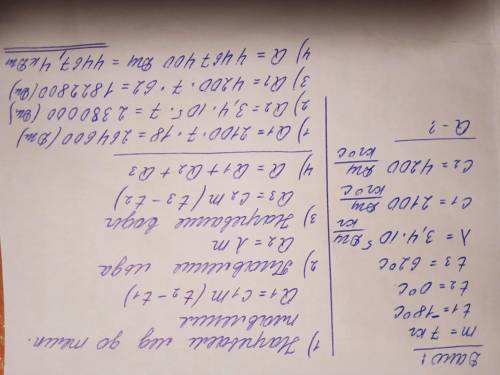 Дано:
m = 7 кг
t₁ = -18°C
t₂ = 0°C
t₃ = 62°C
λ = 3,4 · 10⁵ Дж/кг
c₁ = 2100 Дж/кг°C
c₂ = 4200 Дж/кг°C
Q - ?
1) Нагреваем лёд до темп.
плавления
Q₁ = c₁m (t₂ - t₁)
2) Плавление льда
Q₂ = λ m
3) Нагревание воды
Q₃ = c₂ m (t₃ - t₂)
4) Q = Q₁ + Q₂ + Q₃
1) Q₁ = 2100 · 7 · 18 = 264600 (Дж)
2) Q₂ = 3,4 · 10⁵ · 7 = 2380000 (Дж)
3) Q₂ = 4200 · 7 · 62 = 1822800 (Дж)
4) Q = 4467400 Дж = 4467,4 кДж